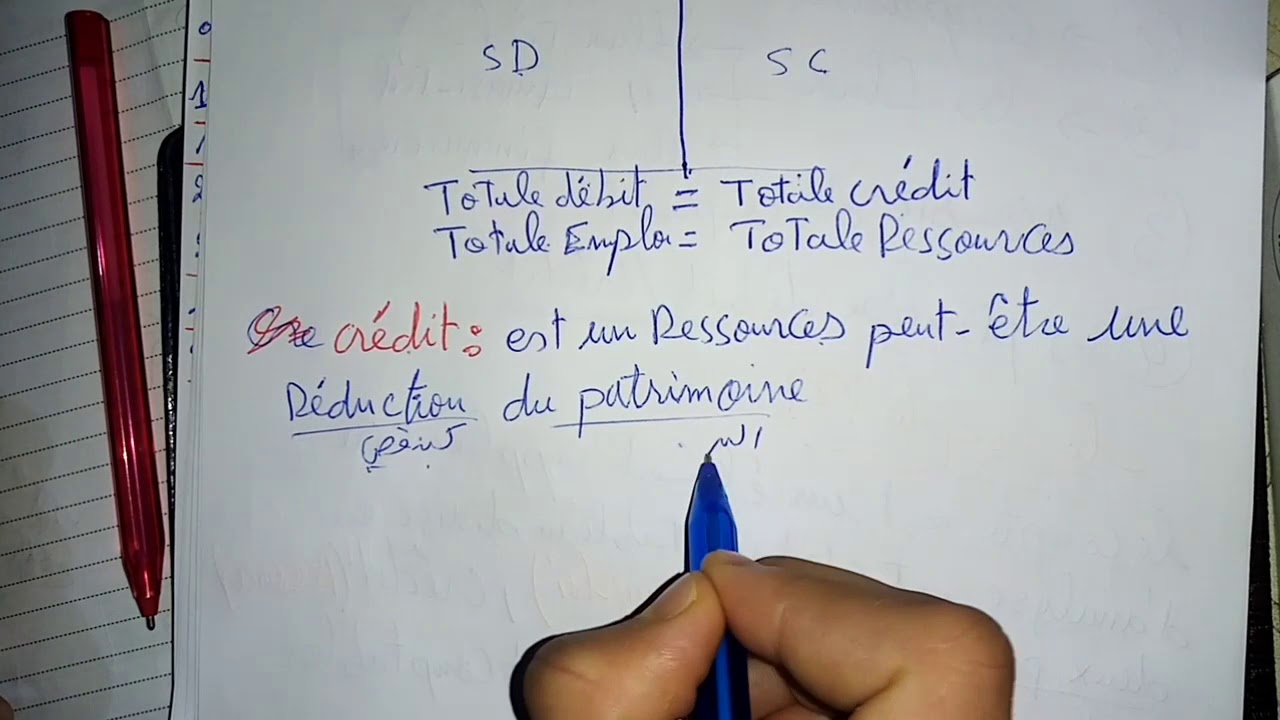 SD SC
Totale débit = Totale crédit
Totale Emploi = Totale Ressources
crédit : est un Ressources peut-être une
Réduction du patrimoine